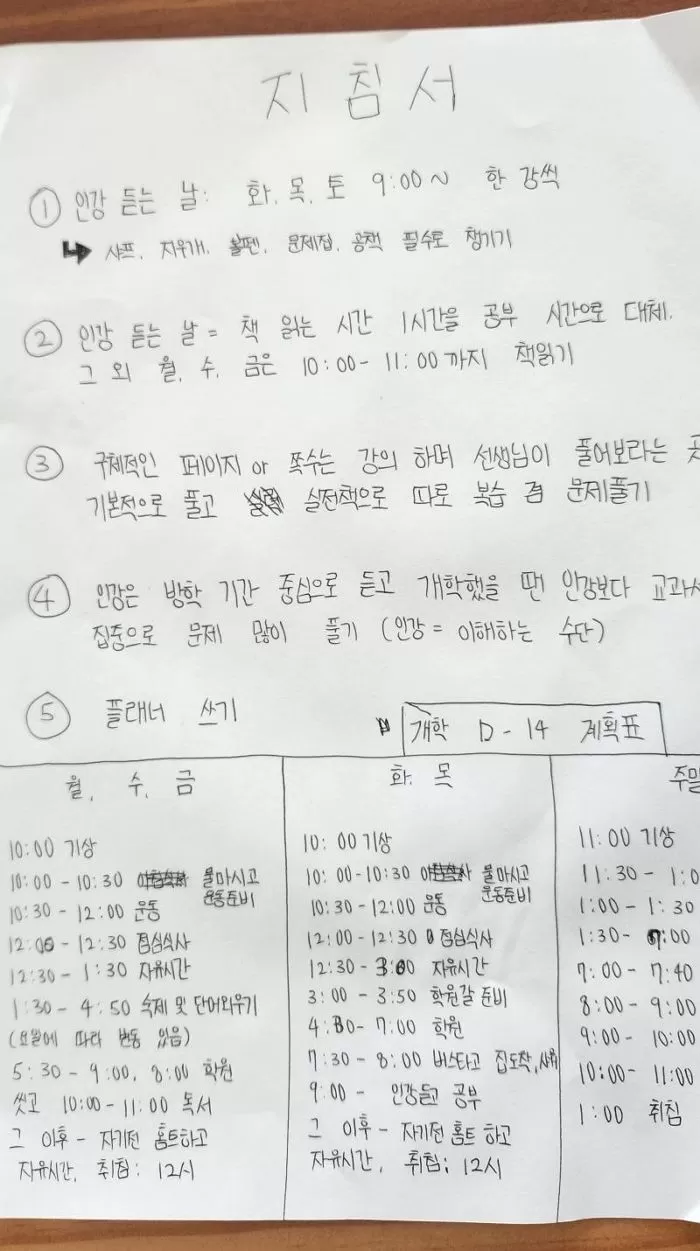 지침서
① 인강 듣는 날: 화, 목, 토 9:00~ 한 강씩
↳ 샤프, 지우개, 볼펜, 문제집, 공책 필수로 챙기기
② 인강 듣는 날 = 책 읽는 시간 1시간을 공부 시간으로 대체.
그 외 월, 수, 금은 10:00 - 11:00까지 책읽기
③ 구체적인 페이지 or 쪽수는 강의 하며 선생님이 풀어보라는 곳
기본적으로 풀고 실전책으로 따로 복습 겸 문제풀기
④ 인강은 방학 기간 중심으로 듣고 개학했을 땐 인강보다 교과서
집중으로 문제 많이 풀기 (인강 = 이해하는 수단)
⑤ 플래너 쓰기
개학 D - 14 계획표
월, 수, 금
10:00 기상
10:00 - 10:30 물마시고 운동준비
10:30 - 12:00 운동
12:00 - 12:30 점심식사
12:30 - 1:30 자유시간
1:30 - 4:50 숙제 및 단어외우기
(요일에 따라 변동 있음)
5:30 - 9:00, 8:00 학원
씻고 10:00 - 11:00 독서
그 이후 - 자기전 홈트하고
자유시간, 취침: 12시
화, 목
10:00 기상
10:00 - 10:30 물마시고 운동준비
10:30 - 12:00 운동
12:00 - 12:30 점심식사
12:30 - 3:00 자유시간
3:00 - 3:50 학원갈 준비
4:30 - 7:00 학원
7:30 - 8:00 버스타고 집도착,
9:00 - 인강듣고 공부
그 이후 - 자기전 홈트 하고
자유시간, 취침: 12시
주말
11:00 기상
11:30 - 1:0
1:00 - 1:30
1:30 - 7:00
7:00 - 7:40
8:00 - 9:00
9:00 - 10:00
10:00 - 11:00
1:00 취침